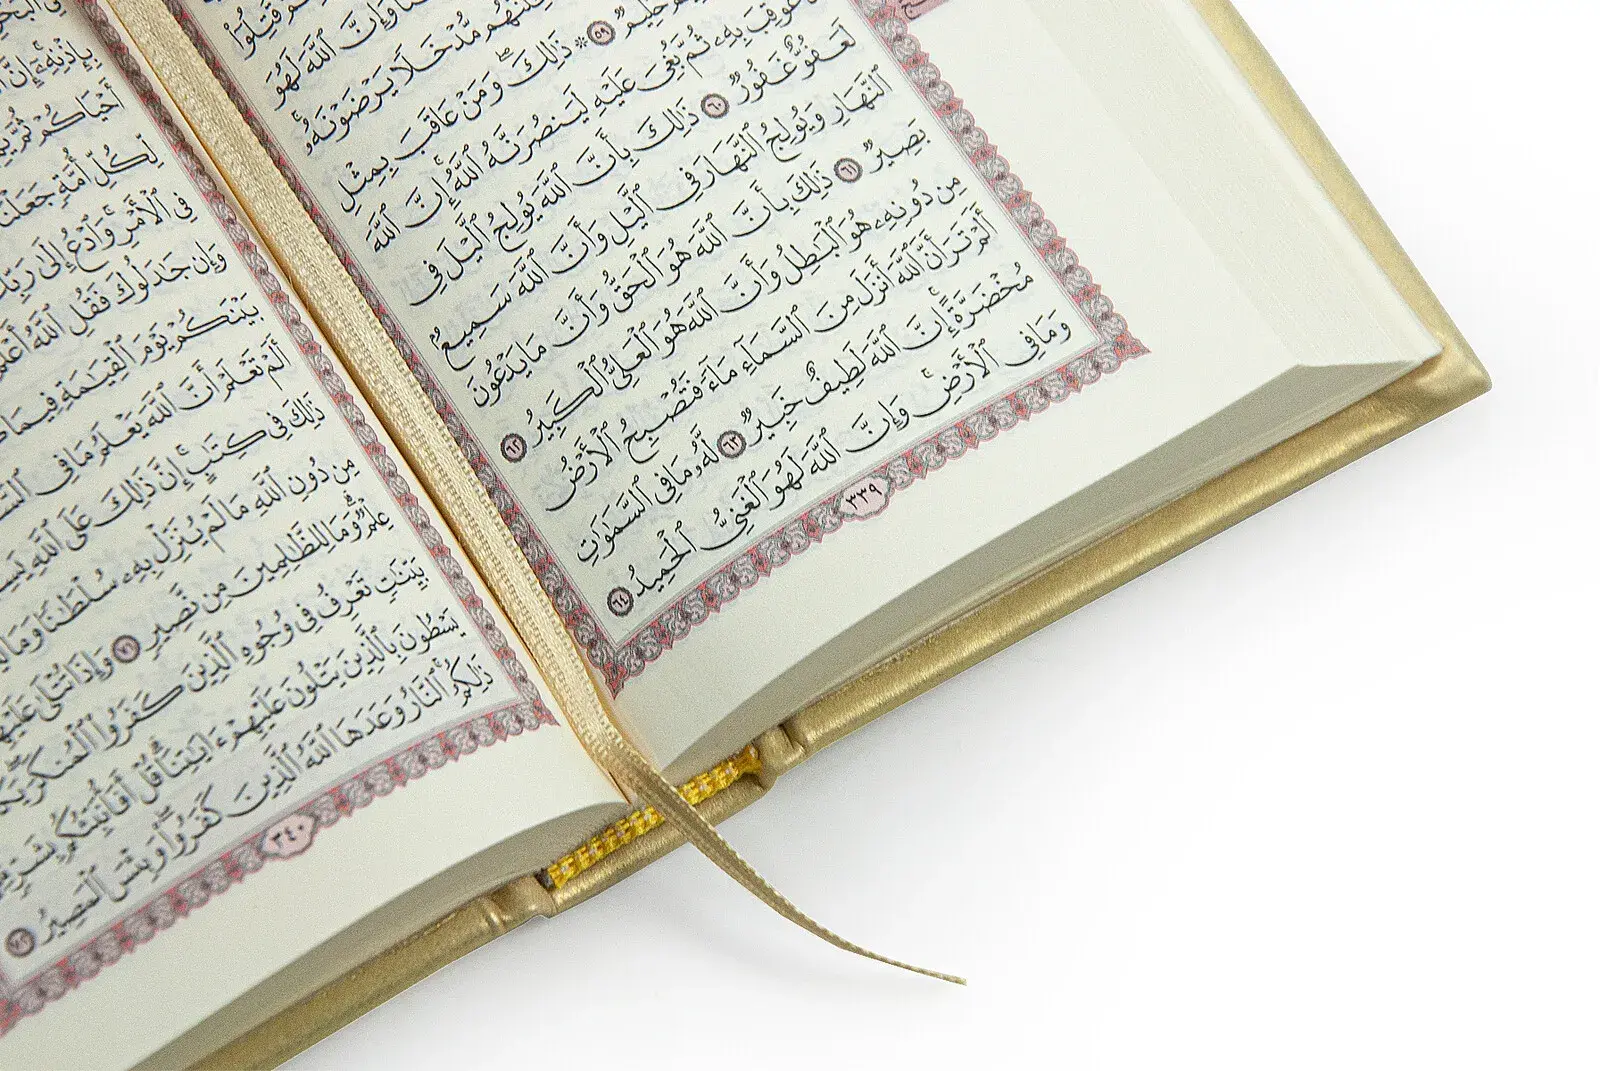 قُتِلُوٓا۟
وَإِنَّ ٱللَّهَ لَهُوَ
مُّدْخَلًا يَرْضَوْنَهُۥ
حَلِيمٌ ٥٩ ۞ ذَٰلِكَ وَمَنْ عَاقَبَ بِمِثْلِ
عُوقِبَ بِهِۦ ثُمَّ بُغِىَ عَلَيْهِ لَيَنصُرَنَّهُ ٱللَّهُ ۗ إِنَّ ٱللَّهَ
لَعَفُوٌّ غَفُورٌ ٦٠ ذَٰلِكَ بِأَنَّ ٱللَّهَ يُولِجُ ٱلَّيْلَ فِى
ٱلنَّهَارِ وَيُولِجُ ٱلنَّهَارَ فِى ٱلَّيْلِ وَأَنَّ ٱللَّهَ سَمِيعٌۢ
بَصِيرٌ ٦١ ذَٰلِكَ بِأَنَّ ٱللَّهَ هُوَ ٱلْحَقُّ وَأَنَّ مَا يَدْعُونَ
مِن دُونِهِۦ هُوَ ٱلْبَٰطِلُ وَأَنَّ ٱللَّهَ هُوَ ٱلْعَلِىُّ ٱلْكَبِيرُ ٦٢
أَلَمْ تَرَ أَنَّ ٱللَّهَ أَنزَلَ مِنَ ٱلسَّمَآءِ مَآءً فَتُصْبِحُ ٱلْأَرْضُ
مُخْضَرَّةً ۗ إِنَّ ٱللَّهَ لَطِيفٌ خَبِيرٌ ٦٣ لَّهُۥ مَا فِى ٱلسَّمَٰوَٰتِ
وَمَا فِى ٱلْأَرْضِ ۗ وَإِنَّ ٱللَّهَ لَهُوَ ٱلْغَنِىُّ ٱلْحَمِيدُ ٦٤
٣٣٩
بِإِذْنِهِۦٓ ۗ إِنَّ
أَحْيَاكُمْ ثُمَّ
لِّكُلِّ أُمَّةٍ جَعَلْنَا
فِى ٱلْأَمْرِ ۚ وَٱدْعُ إِلَىٰ رَبِّكَ
وَإِن جَٰدَلُوكَ فَقُلِ ٱللَّهُ أَعْلَمُ
بَيْنَكُمْ يَوْمَ ٱلْقِيَٰمَةِ فِيمَا
أَلَمْ تَعْلَمْ أَنَّ ٱللَّهَ يَعْلَمُ مَا فِى
ذَٰلِكَ فِى كِتَٰبٍ ۚ إِنَّ ذَٰلِكَ عَلَى ٱللَّهِ
مِن دُونِ ٱللَّهِ مَا لَمْ يُنَزِّلْ بِهِۦ سُلْطَٰنًا وَمَا
عِلْمٌ ۗ وَمَا لِلظَّٰلِمِينَ مِن نَّصِيرٍ ٧١ وَإِذَا تُتْلَىٰ
بَيِّنَٰتٍ تَعْرِفُ فِى وُجُوهِ ٱلَّذِينَ كَفَرُوا۟ ٱلْمُنكَرَ ۖ
يَسْطُونَ بِٱلَّذِينَ يَتْلُونَ عَلَيْهِمْ ءَايَٰتِنَا ۗ قُلْ أَفَأُنَبِّئُكُم بِشَرٍّ
ذَٰلِكُمُ ۗ ٱلنَّارُ وَعَدَهَا ٱللَّهُ ٱلَّذِينَ كَفَرُوا۟ ۖ وَبِئْسَ ٱلْمَصِيرُ ٧٢
٣٤٠